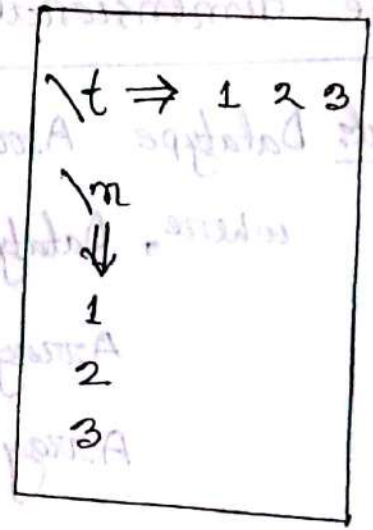 \t ⇒ 1 2 3
\n
⇓
1
2
3